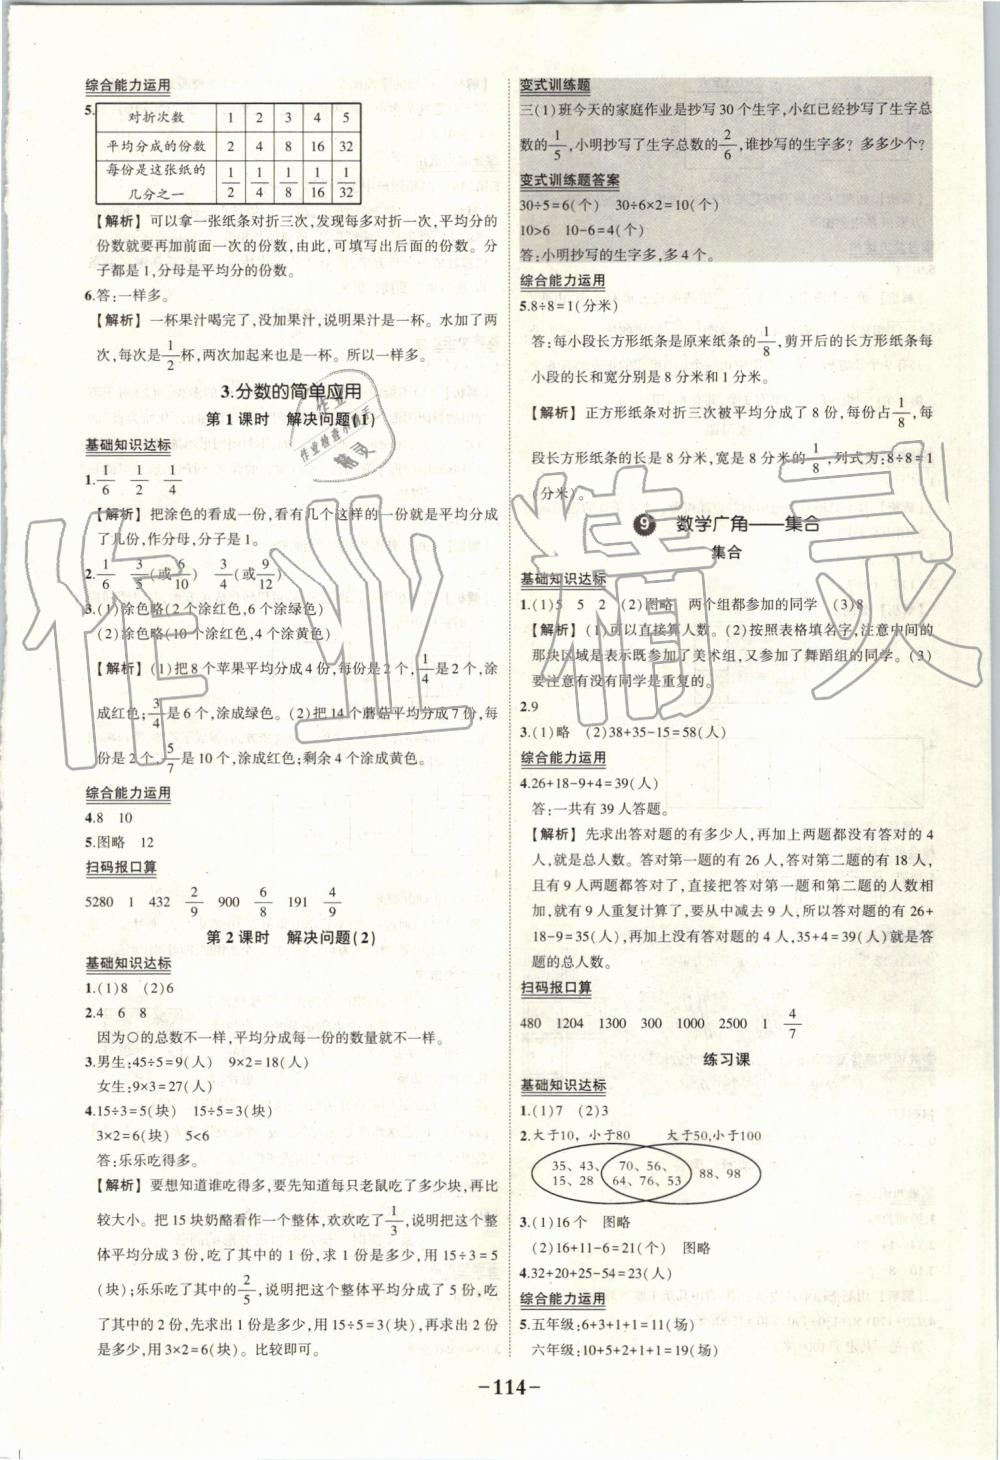 综合能力运用
5.
对折次数 1 2 3 4 5
平均分成的份数 2 4 8 16 32
每份是这张纸的几分之一 1/2 1/4 1/8 1/16 1/32
【解析】可以拿一张纸条对折三次,发现每多对折一次,平均分的
份数就要再加前面一次的份数,由此,可填写出后面的份数。分
子都是1,分母是平均分的份数。
6.答:一样多。
【解析】一杯果汁喝完了,没加果汁,说明果汁是一杯。水加了两
次,每次是1/2杯,两次加起来也是一杯。所以一样多。
3.分数的简单应用
第1课时 解决问题(1)
基础知识达标
1. 1/6 1/2 1/4
【解析】把涂色的看成一份,看有几个这样的一份就是平均分成
了几份,作分母,分子是1。
2. 1/6 3/5(或6/10) 3/4(或9/12)
3.(1)涂色略(2个涂红色,6个涂绿色)
(2)涂色略(10个涂绿色,4个涂黄色)
【解析】(1)把8个苹果平均分成4份,每份是2个,1/4是2个,涂
成红色;3/4是6个,涂成绿色。(2)把14个蘑菇平均分成7份,每
份是2个,5/7是10个,涂成绿色;剩余4个涂成黄色。
综合能力运用
4.8 10
5.图略 12
扫码报口算
5280 1 432 2/9 900 6/8 191 4/9
第2课时 解决问题(2)
基础知识达标
1.(1)8 (2)6
2.4 6 8
因为○的总数不一样,平均分成每一份的数量就不一样。
3.男生:45÷5=9(人) 9×2=18(人)
女生:9×3=27(人)
4.15÷3=5(块) 15÷5=3(块)
3×2=6(块) 5<6
答:乐乐吃得多。
【解析】要想知道谁吃得多,要先知道每只老鼠吃了多少块,再比
较大小。把15块奶酪看作一个整体,欢欢吃了1/3,说明把这个整
体平均分成3份,吃了其中的1份,求1份是多少,用15÷3=5
(块);乐乐吃了其中的2/5,说明把这个整体平均分成了5份,吃
了其中的2份,先求出1份是多少,用15÷5=3(块),再求出2份
是多少,用3×2=6(块)。比较即可。
变式训练题
三(1)班今天的家庭作业是抄写30个生字,小红已经抄写了生字总
数的1/5,小明抄写了生字总数的2/6,谁抄写的生字多?多多少个?
变式训练题答案
30÷5=6(个) 30÷6×2=10(个)
10>6 10-6=4(个)
答:小明抄写的生字多,多4个。
综合能力运用
5.8÷8=1(分米)
答:每小段长方形纸条是原来纸条的1/8,剪开后的长方形纸条每
小段的长和宽分别是8分米和1分米。
【解析】正方形纸条对折三次被平均分成了8份,每份占1/8,每
段长方形纸条的长是8分米,宽是8分米的1/8,列式为:8÷8=1
(分米)。
9 数学广角——集合
集合
基础知识达标
1.(1)5 5 2 (2)图略 两个组都参加的同学 (3)8
【解析】(1)可以直接算人数。(2)按照表格填名字,注意中间的
那块区域是表示既参加了美术组,又参加了舞蹈组的同学。(3)
要注意有没有同学是重复的。
2.9
3.(1)略 (2)38+35-15=58(人)
综合能力运用
4.26+18-9+4=39(人)
答:一共有39人答题。
【解析】先求出答对题的有多少人,再加上两题都没有答对的4
人,就是总人数。答对第一题的有26人,答对第二题的有18人,
且有9人两题都答对了,直接把答对第一题和第二题的人数相
加,就有9人重复计算了,要从中减去9人,所以答对题的有26+
18-9=35(人),再加上没有答对题的4人,35+4=39(人)就是答
题的总人数。
扫码报口算
480 1204 1300 300 1000 2500 1 4/7
练习课
基础知识达标
1.(1)7 (2)3
2.大于10,小于80 大于50,小于100
35、43、 70、56、 88、98
15、28 64、76、53
3.(1)16个 图略
(2)16+11-6=21(个) 图略
4.32+20+25-54=23(人)
综合能力运用
5.五年级:6+3+1+1=11(场)
六年级:10+5+2+1+1=19(场)
-114-
作业
作业检查小精灵
精灵
作业精灵